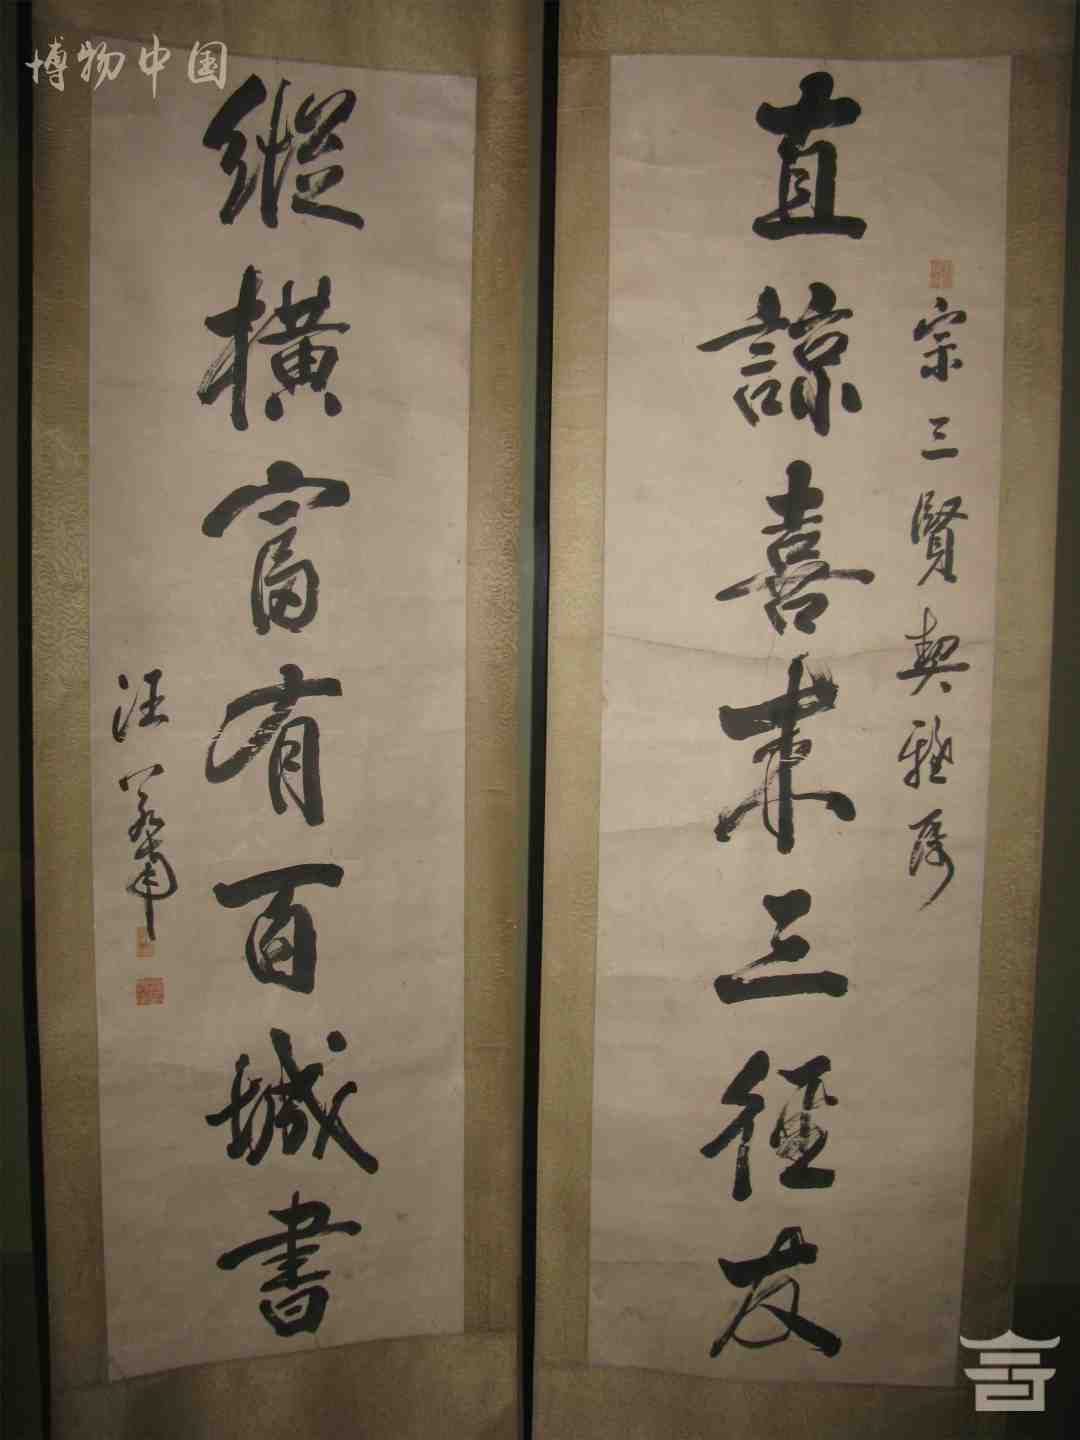 博物中国
宗三賢契雅屬
直諒喜來三徑友
縱橫富有百城書
汪